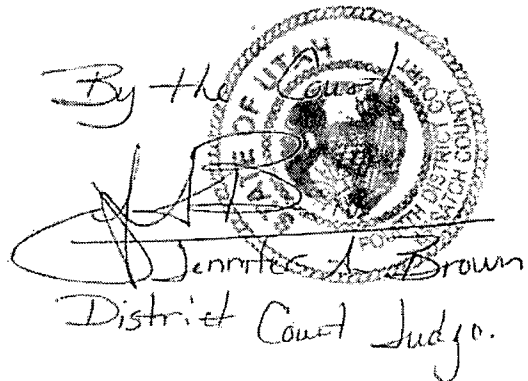 By the Court
STATE OF UTAH
FOURTH DISTRICT COURT
WASATCH COUNTY
Jennifer A. Brown
District Court Judge.